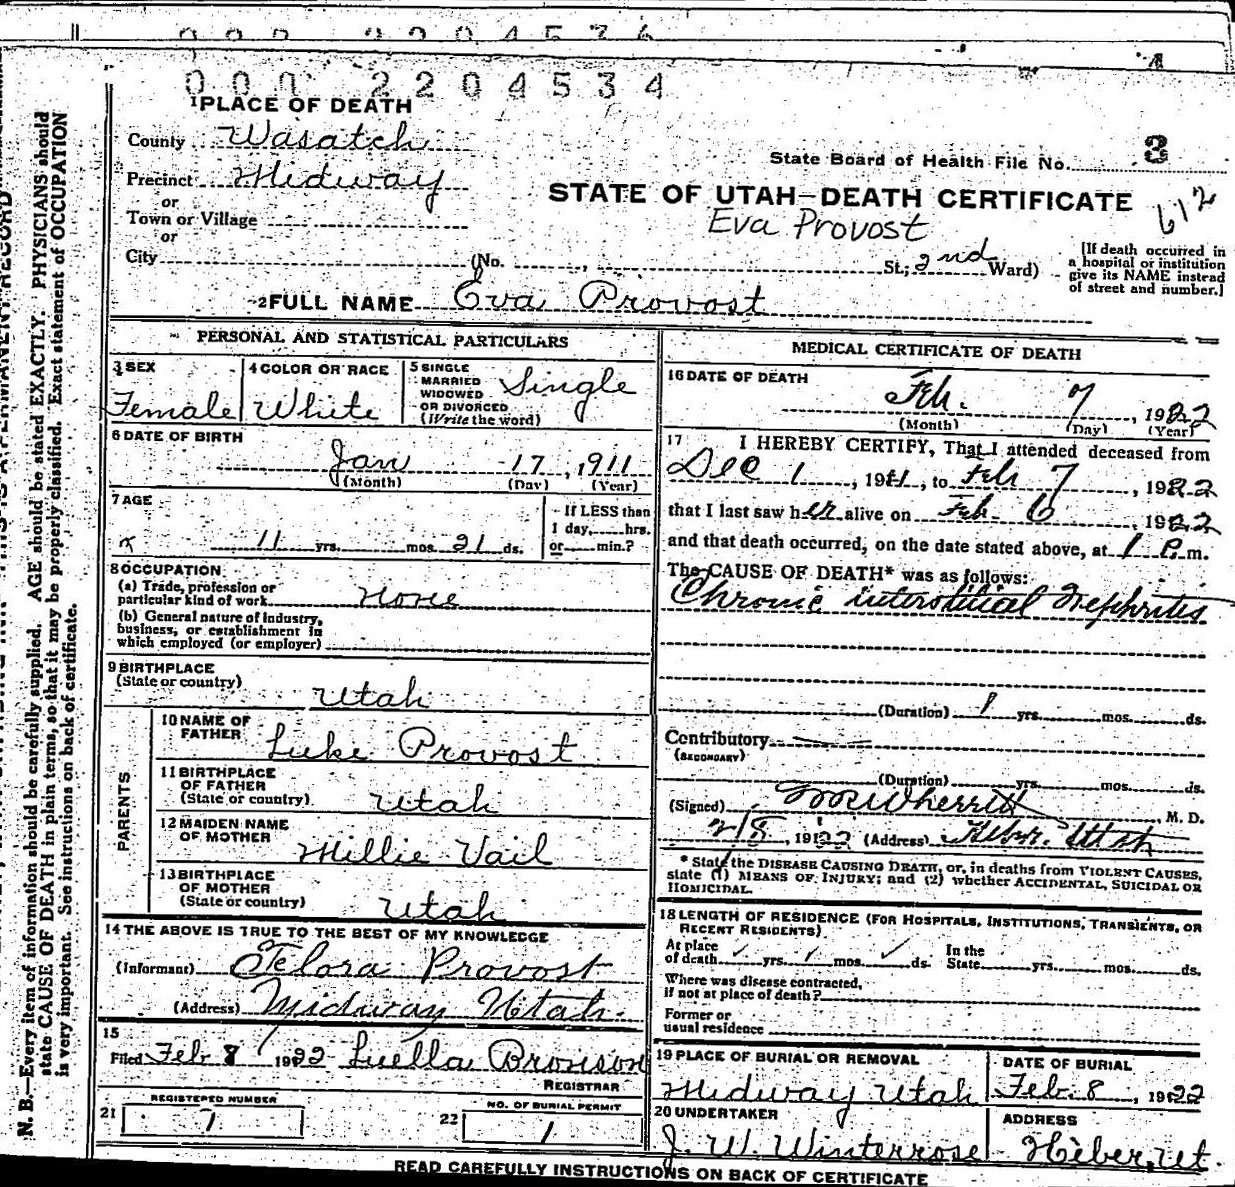 000 2204536
000 2204534
1 PLACE OF DEATH
County Wasatch
State Board of Health File No. 3
Precinct Midway
or
Town or Village
or
City (No. St.; 2nd Ward)
STATE OF UTAH—DEATH CERTIFICATE
612
Eva Provost
[If death occurred in
a hospital or institution
give its NAME instead
of street and number.]
2 FULL NAME Eva Provost
PERSONAL AND STATISTICAL PARTICULARS
3 SEX
Female
4 COLOR OR RACE
White
5 SINGLE
MARRIED
WIDOWED
OR DIVORCED
(Write the word)
Single
6 DATE OF BIRTH
Jan 17, 1911
(Month) (Day) (Year)
7 AGE
11 yrs. mos. 21 ds.
If LESS than
1 day, hrs.
or min.?
8 OCCUPATION
(a) Trade, profession or
particular kind of work None
(b) General nature of industry,
business, or establishment in
which employed (or employer)
9 BIRTHPLACE
(State or country)
Utah
PARENTS
10 NAME OF
FATHER
Luke Provost
11 BIRTHPLACE
OF FATHER
(State or country)
Utah
12 MAIDEN NAME
OF MOTHER
Millie Vail
13 BIRTHPLACE
OF MOTHER
(State or country)
Utah
14 THE ABOVE IS TRUE TO THE BEST OF MY KNOWLEDGE
(Informant) Provost
(Address) Midway Utah.
15
Filed Feb 8 1922 Luella Bronson
REGISTRAR
REGISTERED NUMBER
21 1
NO. OF BURIAL PERMIT
22 1
MEDICAL CERTIFICATE OF DEATH
16 DATE OF DEATH
Feb. 7, 1922
(Month) (Day) (Year)
17 I HEREBY CERTIFY, That I attended deceased from
Dec 1, 1921, to Feb 7, 1922
that I last saw her alive on Feb. 6, 1922
and that death occurred, on the date stated above, at 1 P. m.
The CAUSE OF DEATH* was as follows:
Chronic interstitial Nephritis
(Duration) 1 yrs. mos. ds.
Contributory
(SECONDARY)
(Duration) yrs. mos. ds.
(Signed) Wherritt, M. D.
2/8, 1922 (Address) Heber. Utah
* State the DISEASE CAUSING DEATH, or, in deaths from VIOLENT CAUSES,
state (1) MEANS OF INJURY; and (2) whether ACCIDENTAL, SUICIDAL OR
HOMICIDAL.
18 LENGTH OF RESIDENCE (FOR HOSPITALS, INSTITUTIONS, TRANSIENTS, OR
RECENT RESIDENTS)
At place
of death yrs. mos. ds.
In the
State yrs. mos. ds.
Where was disease contracted,
if not at place of death?
Former or
usual residence
19 PLACE OF BURIAL OR REMOVAL
Midway Utah
DATE OF BURIAL
Feb. 8, 1922
20 UNDERTAKER
J. W. Winterrose
ADDRESS
Heber, Ut.
READ CAREFULLY INSTRUCTIONS ON BACK OF CERTIFICATE
N. B.—Every item of information should be carefully supplied. AGE should be stated EXACTLY. PHYSICIANS should
state CAUSE OF DEATH in plain terms, so that it may be properly classified. Exact statement of OCCUPATION
is very important. See instructions on back of certificate.